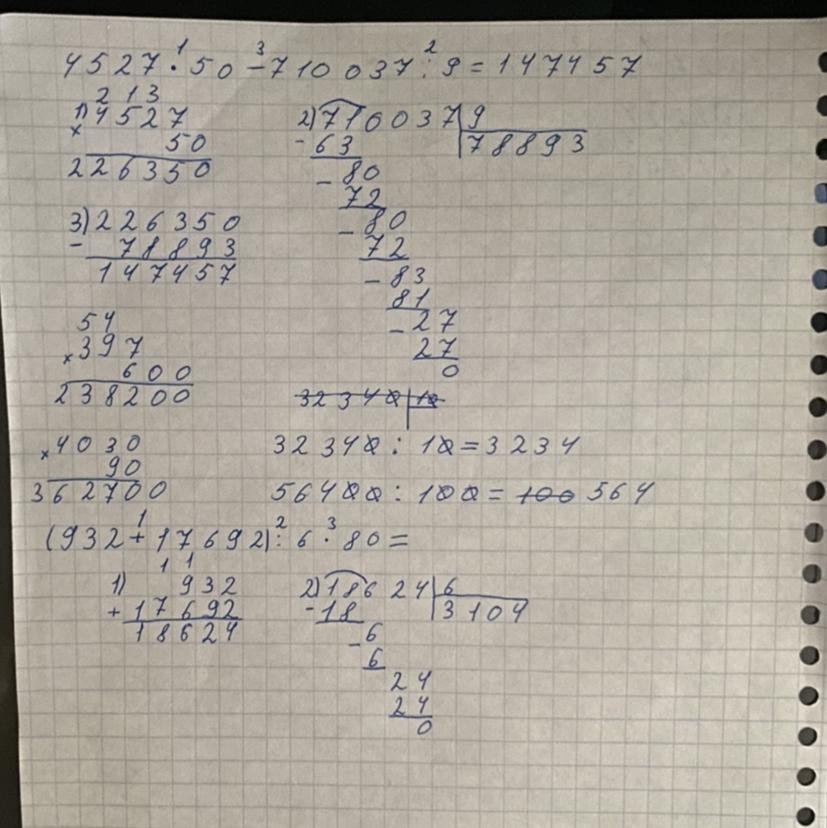 4527·50-710037:9=147457
1 3 2
2 1 3
1) 4527
× 50
226350
2) 710037 | 9
78893
-63
-80
72
-80
72
-83
81
-27
27
0
3) 226350
- 78893
147457
54
×397
600
238200
32340 | 10
×4030
90
362700
32340:10=3234
56400:100=100 564
(932+17692):6·80=
1 2 3
1 1
1) 932
+17692
18624
2) 18624 | 6
3104
-18
-6
6
24
24
0